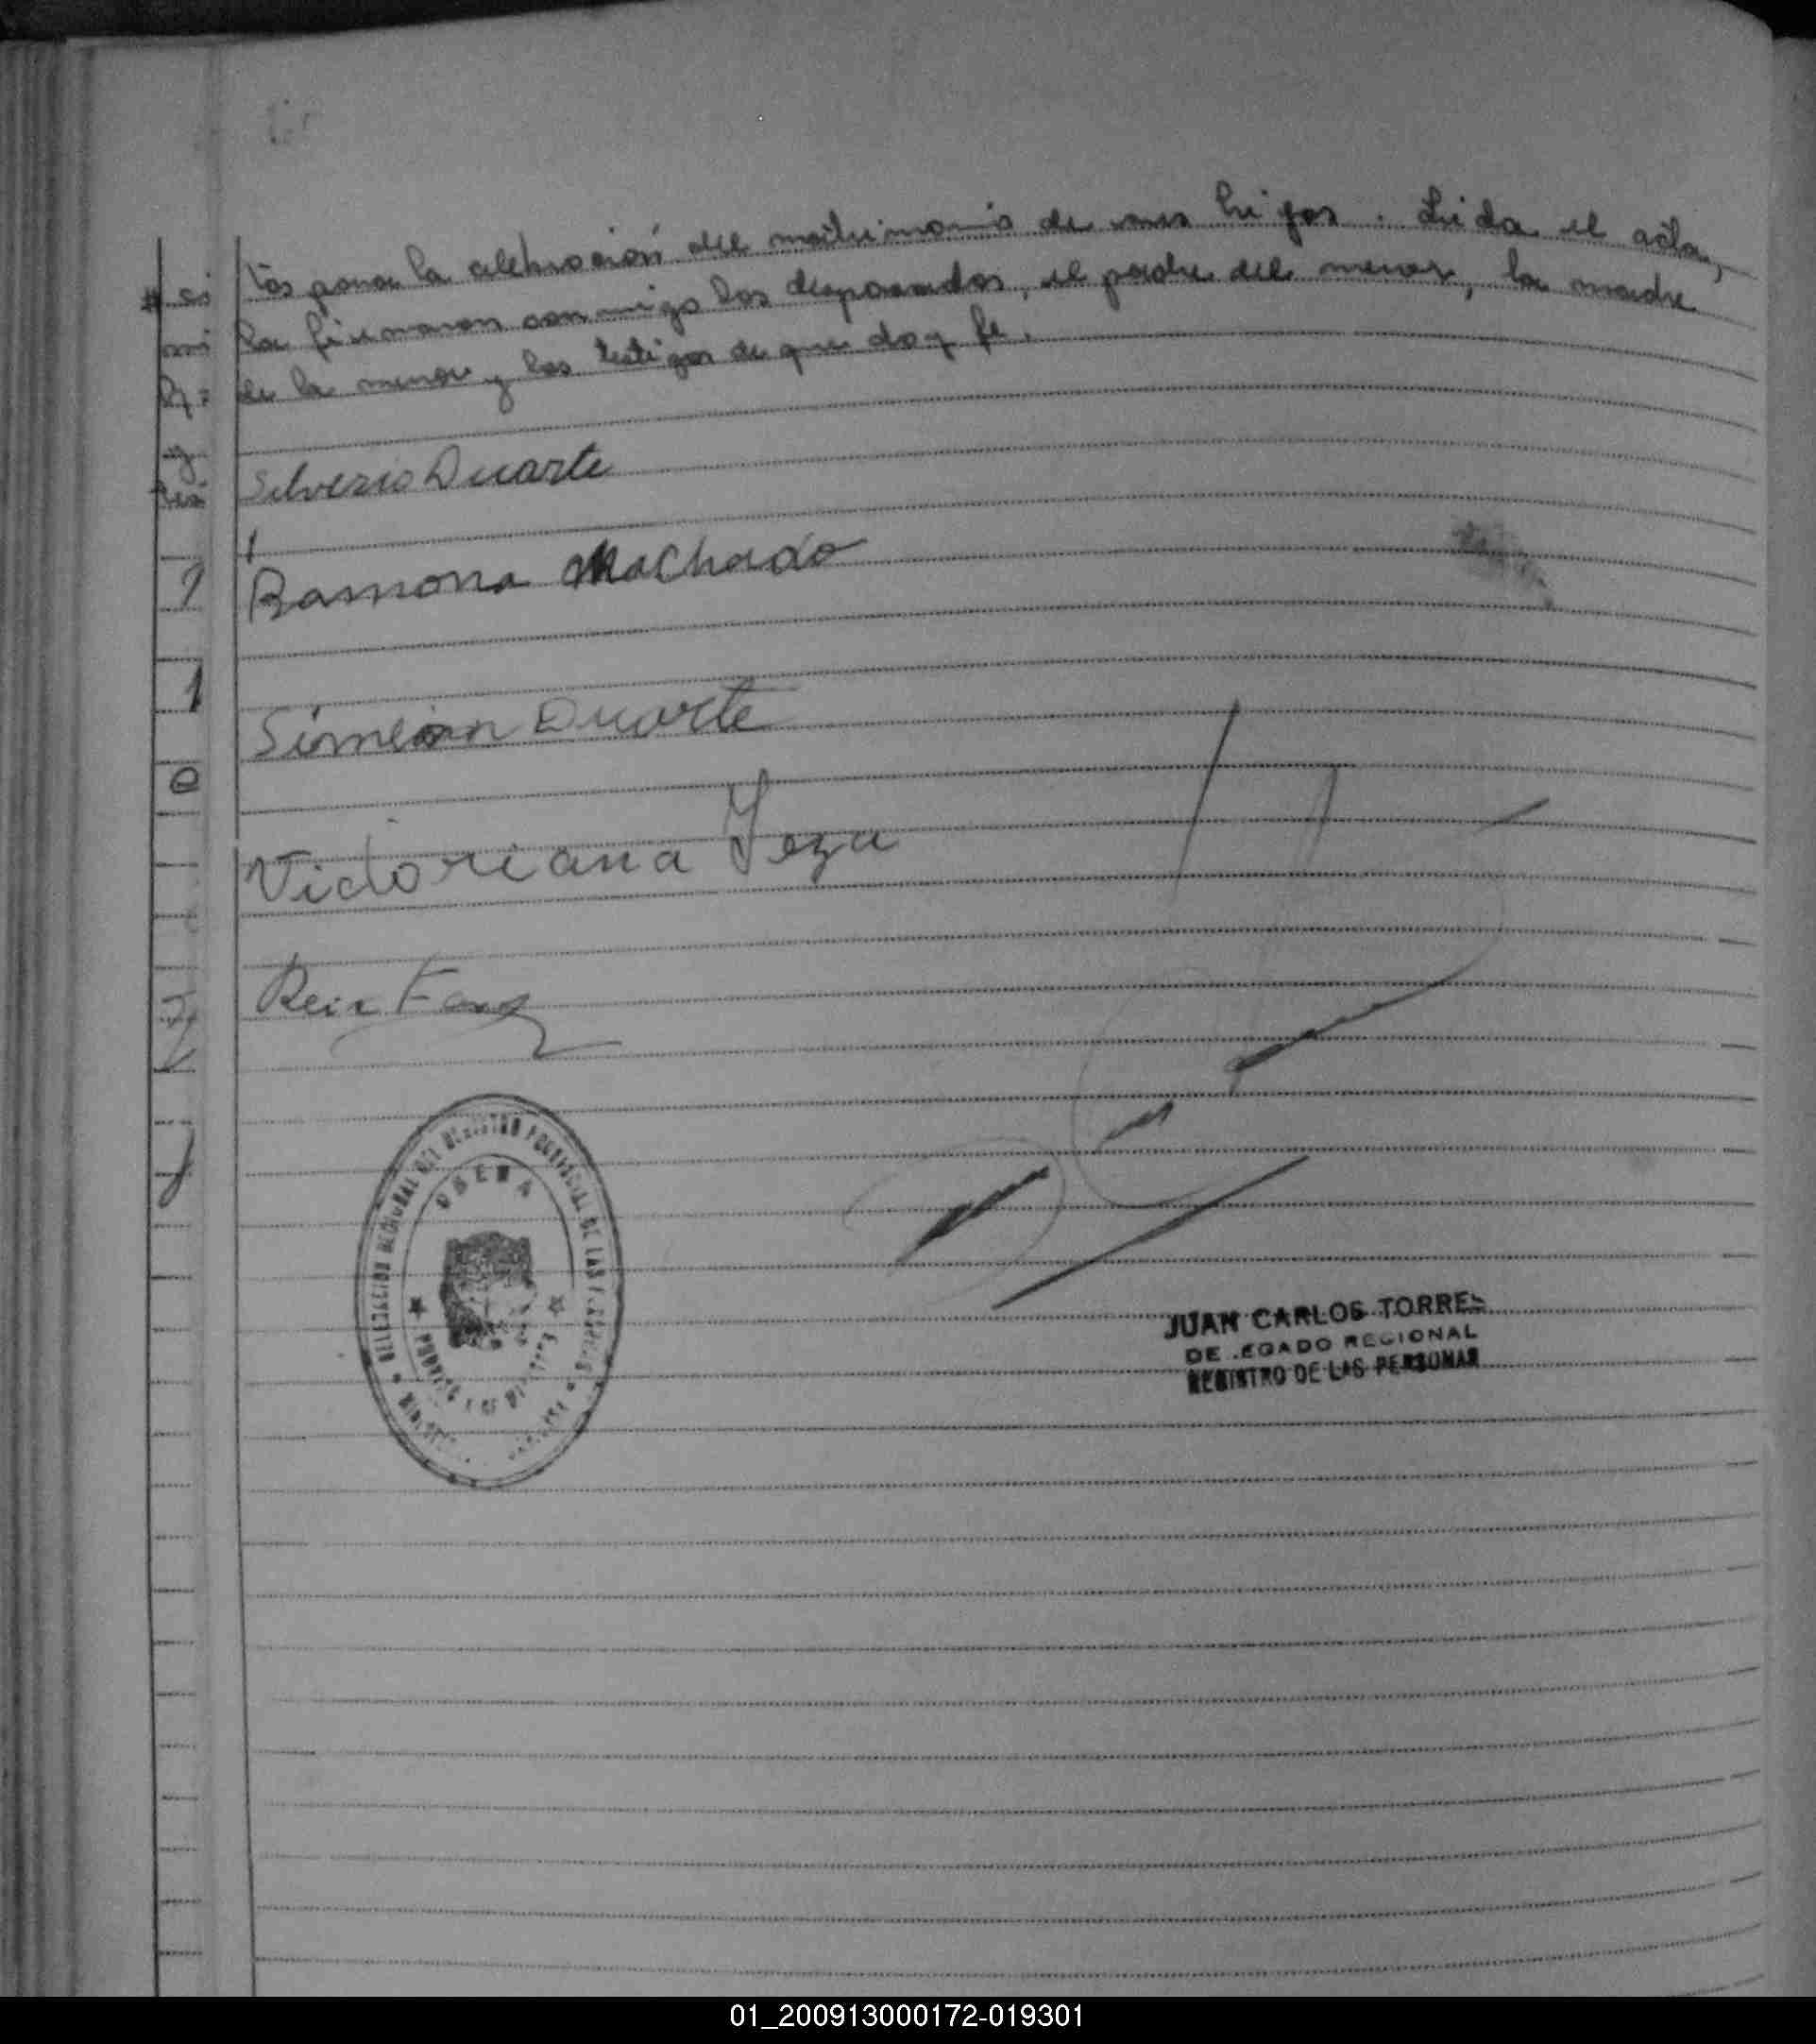 tos para la celebración del matrimonio de sus hijos. Leida el acta,
la firmaron conmigo los desposados, el padre del menor, la madre
de la menor y los testigos de que doy fe.
Silverio Duarte
Ramona Machado
Simeón Duarte
Victoriana Yeza
DELEGACION REGIONAL DEL REGISTRO PROVINCIAL DE LAS PERSONAS
OBERA
JUAN CARLOS TORRES
DELEGADO REGIONAL
REGISTRO DE LAS PERSONAS
01_200913000172-019301